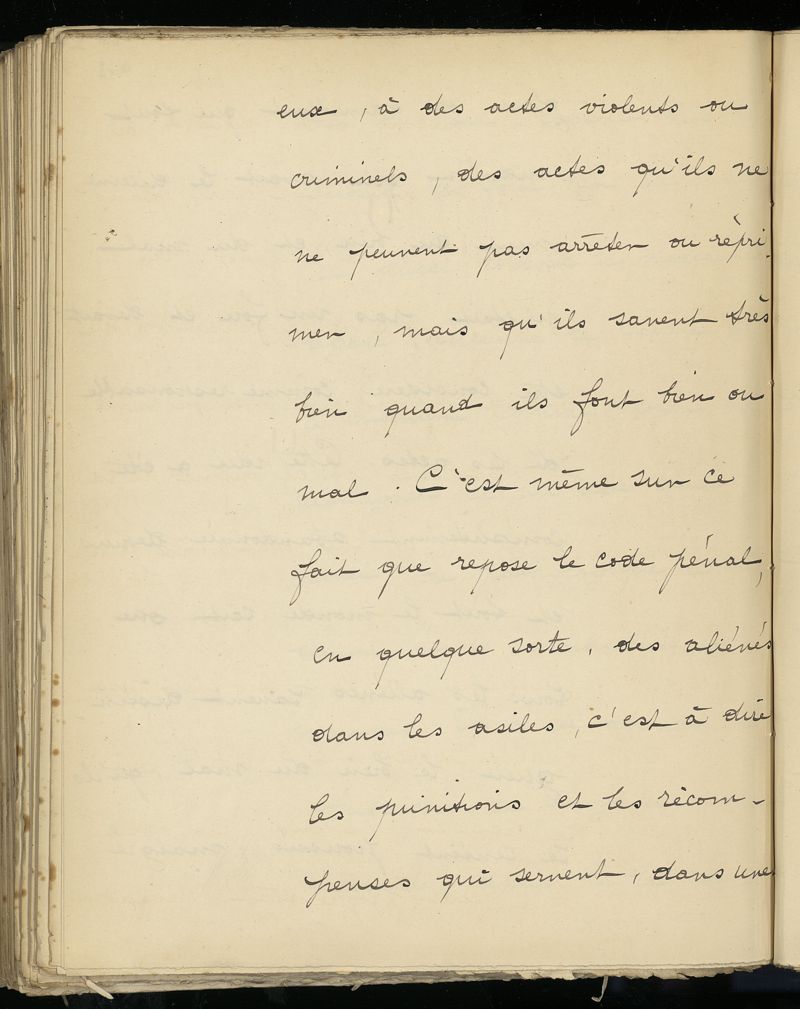 eux, à des actes violents ou
criminels, des actes qu'ils ne
ne peuvent pas arrêter ou répri-
mer, mais qu'ils savent très
bien quand ils font bien ou
mal. C'est même sur ce
fait que repose le code pénal,
en quelque sorte, des aliénés
dans les asiles, c'est à dire
les punitions et les récom-
penses qui servent, dans une